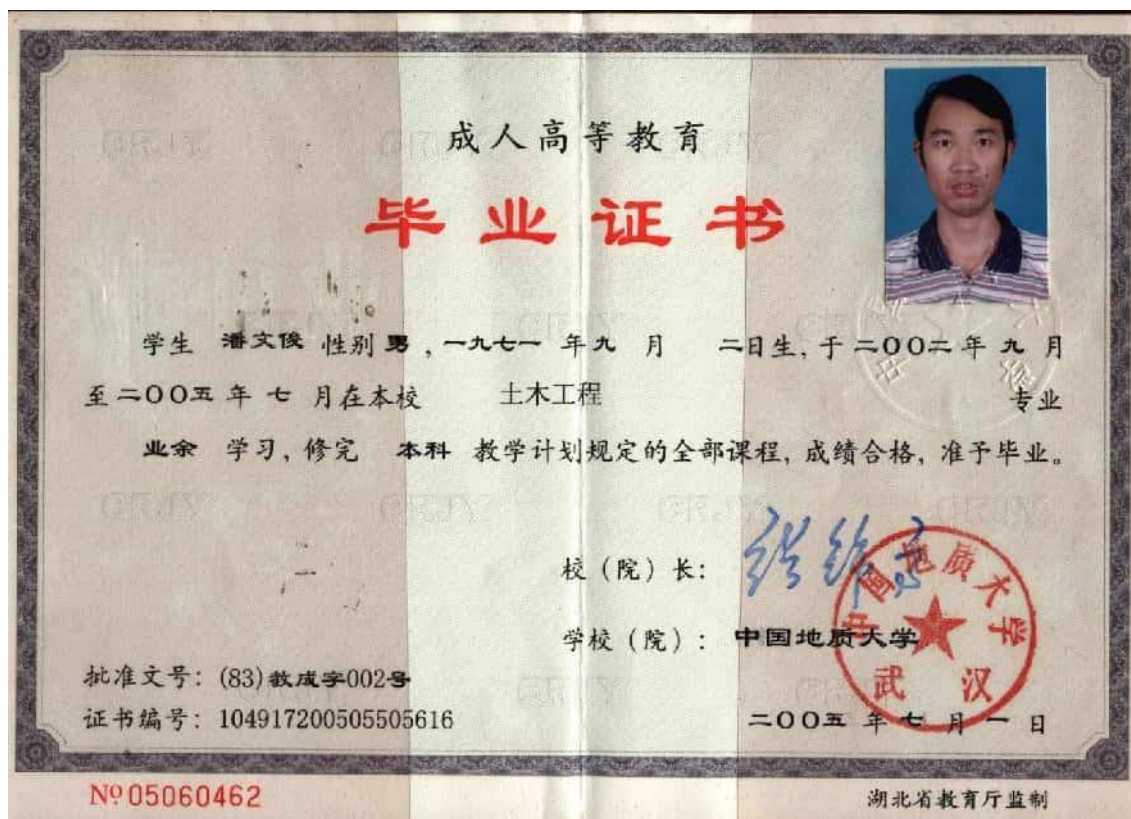 成人高等教育
毕业证书
学生 潘文俊 性别 男 , 一九七一 年 九 月 二日生, 于 二〇〇二 年 九 月
至 二〇〇五 年 七 月在本校 土木工程 专业
业余 学习, 修完 本科 教学计划规定的全部课程, 成绩合格, 准予毕业。
校(院)长:
学校(院): 中国地质大学
中国地质大学
武汉
批准文号: (83)教成字002号
证书编号: 104917200505505616
二〇〇五 年 七 月 一 日
№ 05060462
湖北省教育厅监制